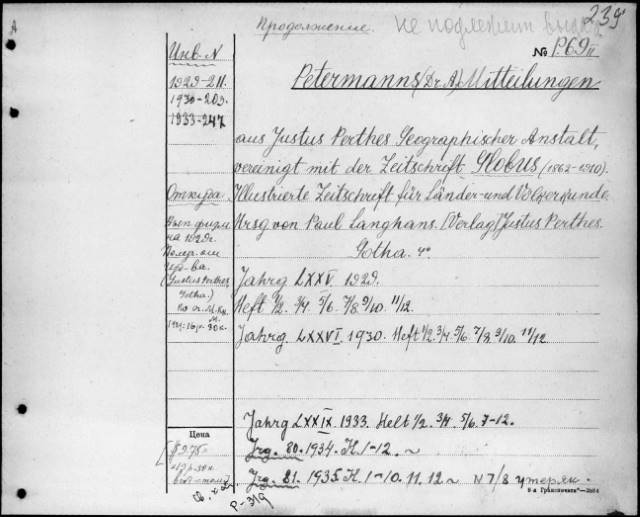 А
239
Продолжение.
не подлежит выдаче
№ P.69 II
Инв. N
1929-211.
1930-203.
1933-247
Petermanns (Dr. A.) Mitteilungen
aus Justus Perthes Geographischer Anstalt,
vereinigt mit der Zeitschrift Globus (1862-1910).
Откуда.
Illustrierte Zeitschrift für Länder- und Völkerkunde.
Hrsg von Paul Langhans. (Verlag) Justus Perthes.
Gotha. 4°
на 1929г.
(Justus Perthes,
Gotha.)
Jahrg LXXV 1929.
Heft 1/2. 3/4. 5/6. 7/8 9/10. 11/12.
Jahrg. LXXVI. 1930. Heft 1/2. 3/4. 5/6. 7/8. 9/10. 11/12
Jahrg LXXIX. 1933. Heft 1/2. 3/4. 5/6. 7-12.
Цена
Jrg. 80. 1934. H. 1-12.
Jrg. 81. 1935 H. 1-10. 11. 12 N 7/8 утерян.
P-319